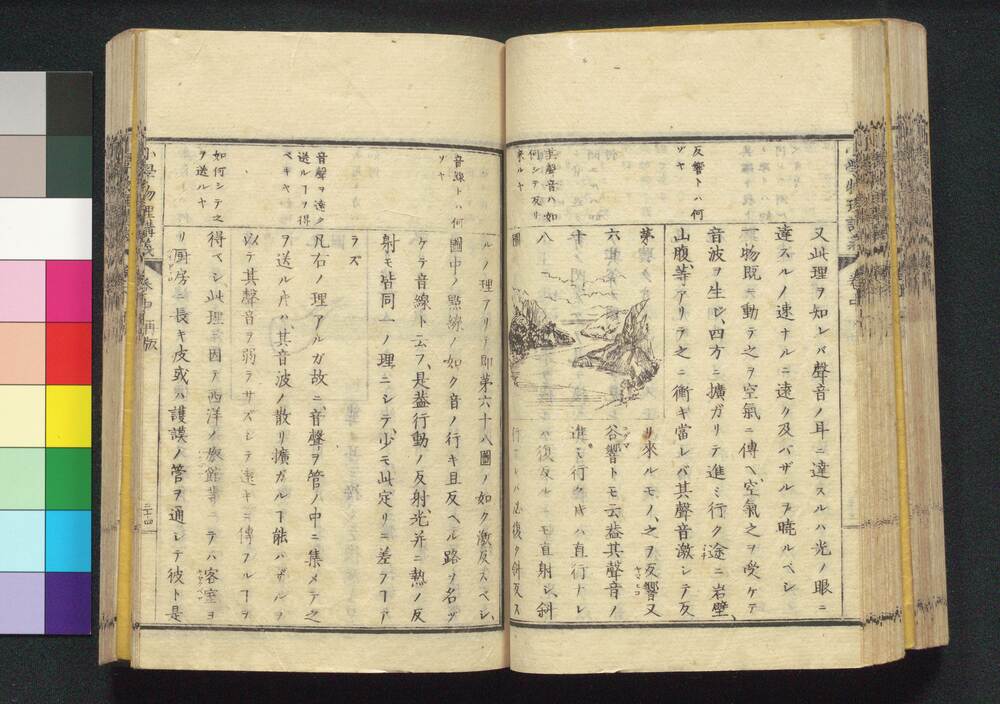 反響トハ何
ゾヤ
其聲音ハ如
何シテ反リ
來ルヤ
又此理ヲ知レバ聲音ノ耳ニ達スルハ光ノ眼ニ
達スルノ速ナルニ遠ク及バザルヲ曉ルベシ
物既ニ動テ之ヲ空氣ニ傳ヘ空氣之ヲ受ケテ
音波ヲ生ジ、四方ニ擴ガリテ進ミ行ク途ニ岩壁、
山腹等アリテ之ニ衝キ當レバ其聲音激シテ反
リ來ルモノ、之ヲ反響又
谷響トモ云蓋其聲音ノ
進ミ行クキハ直行ナレ
第
六
十
八
圖
音線トハ何
ゾヤ
音聲ヲ遠ク
送ルヿヲ得
ベキヤ
如何シテ之
ヲ送ルヤ
ルノ理アリ即第六十八圖ノ如ク激反スベシ、
圖中ノ點線ノ如ク音ノ行キ且反ヘル路ヲ名ヅ
ケテ音線ト云フ、是蓋行動ノ反射、光并ニ熱ノ反
射モ皆同一ノ理ニシテ、少モ此定リニ差フヿナ
ラズ
凡右ノ理アルガ故ニ音聲ヲ管ノ中ニ集メテ之
ヲ送ル片ハ、其音波ノ散リ擴ガルヿ能ハザルヲ
以テ其聲音ヲ弱ラサズシテ遠キニ傳フルヿヲ
得ベシ、此理ニ因テ西洋ノ旅館等ニテハ客室ヨ
リ厨房ニ長キ皮或ハ護謨ノ管ヲ通シテ彼ト是
小學物理講義
卷中
再版
二十四